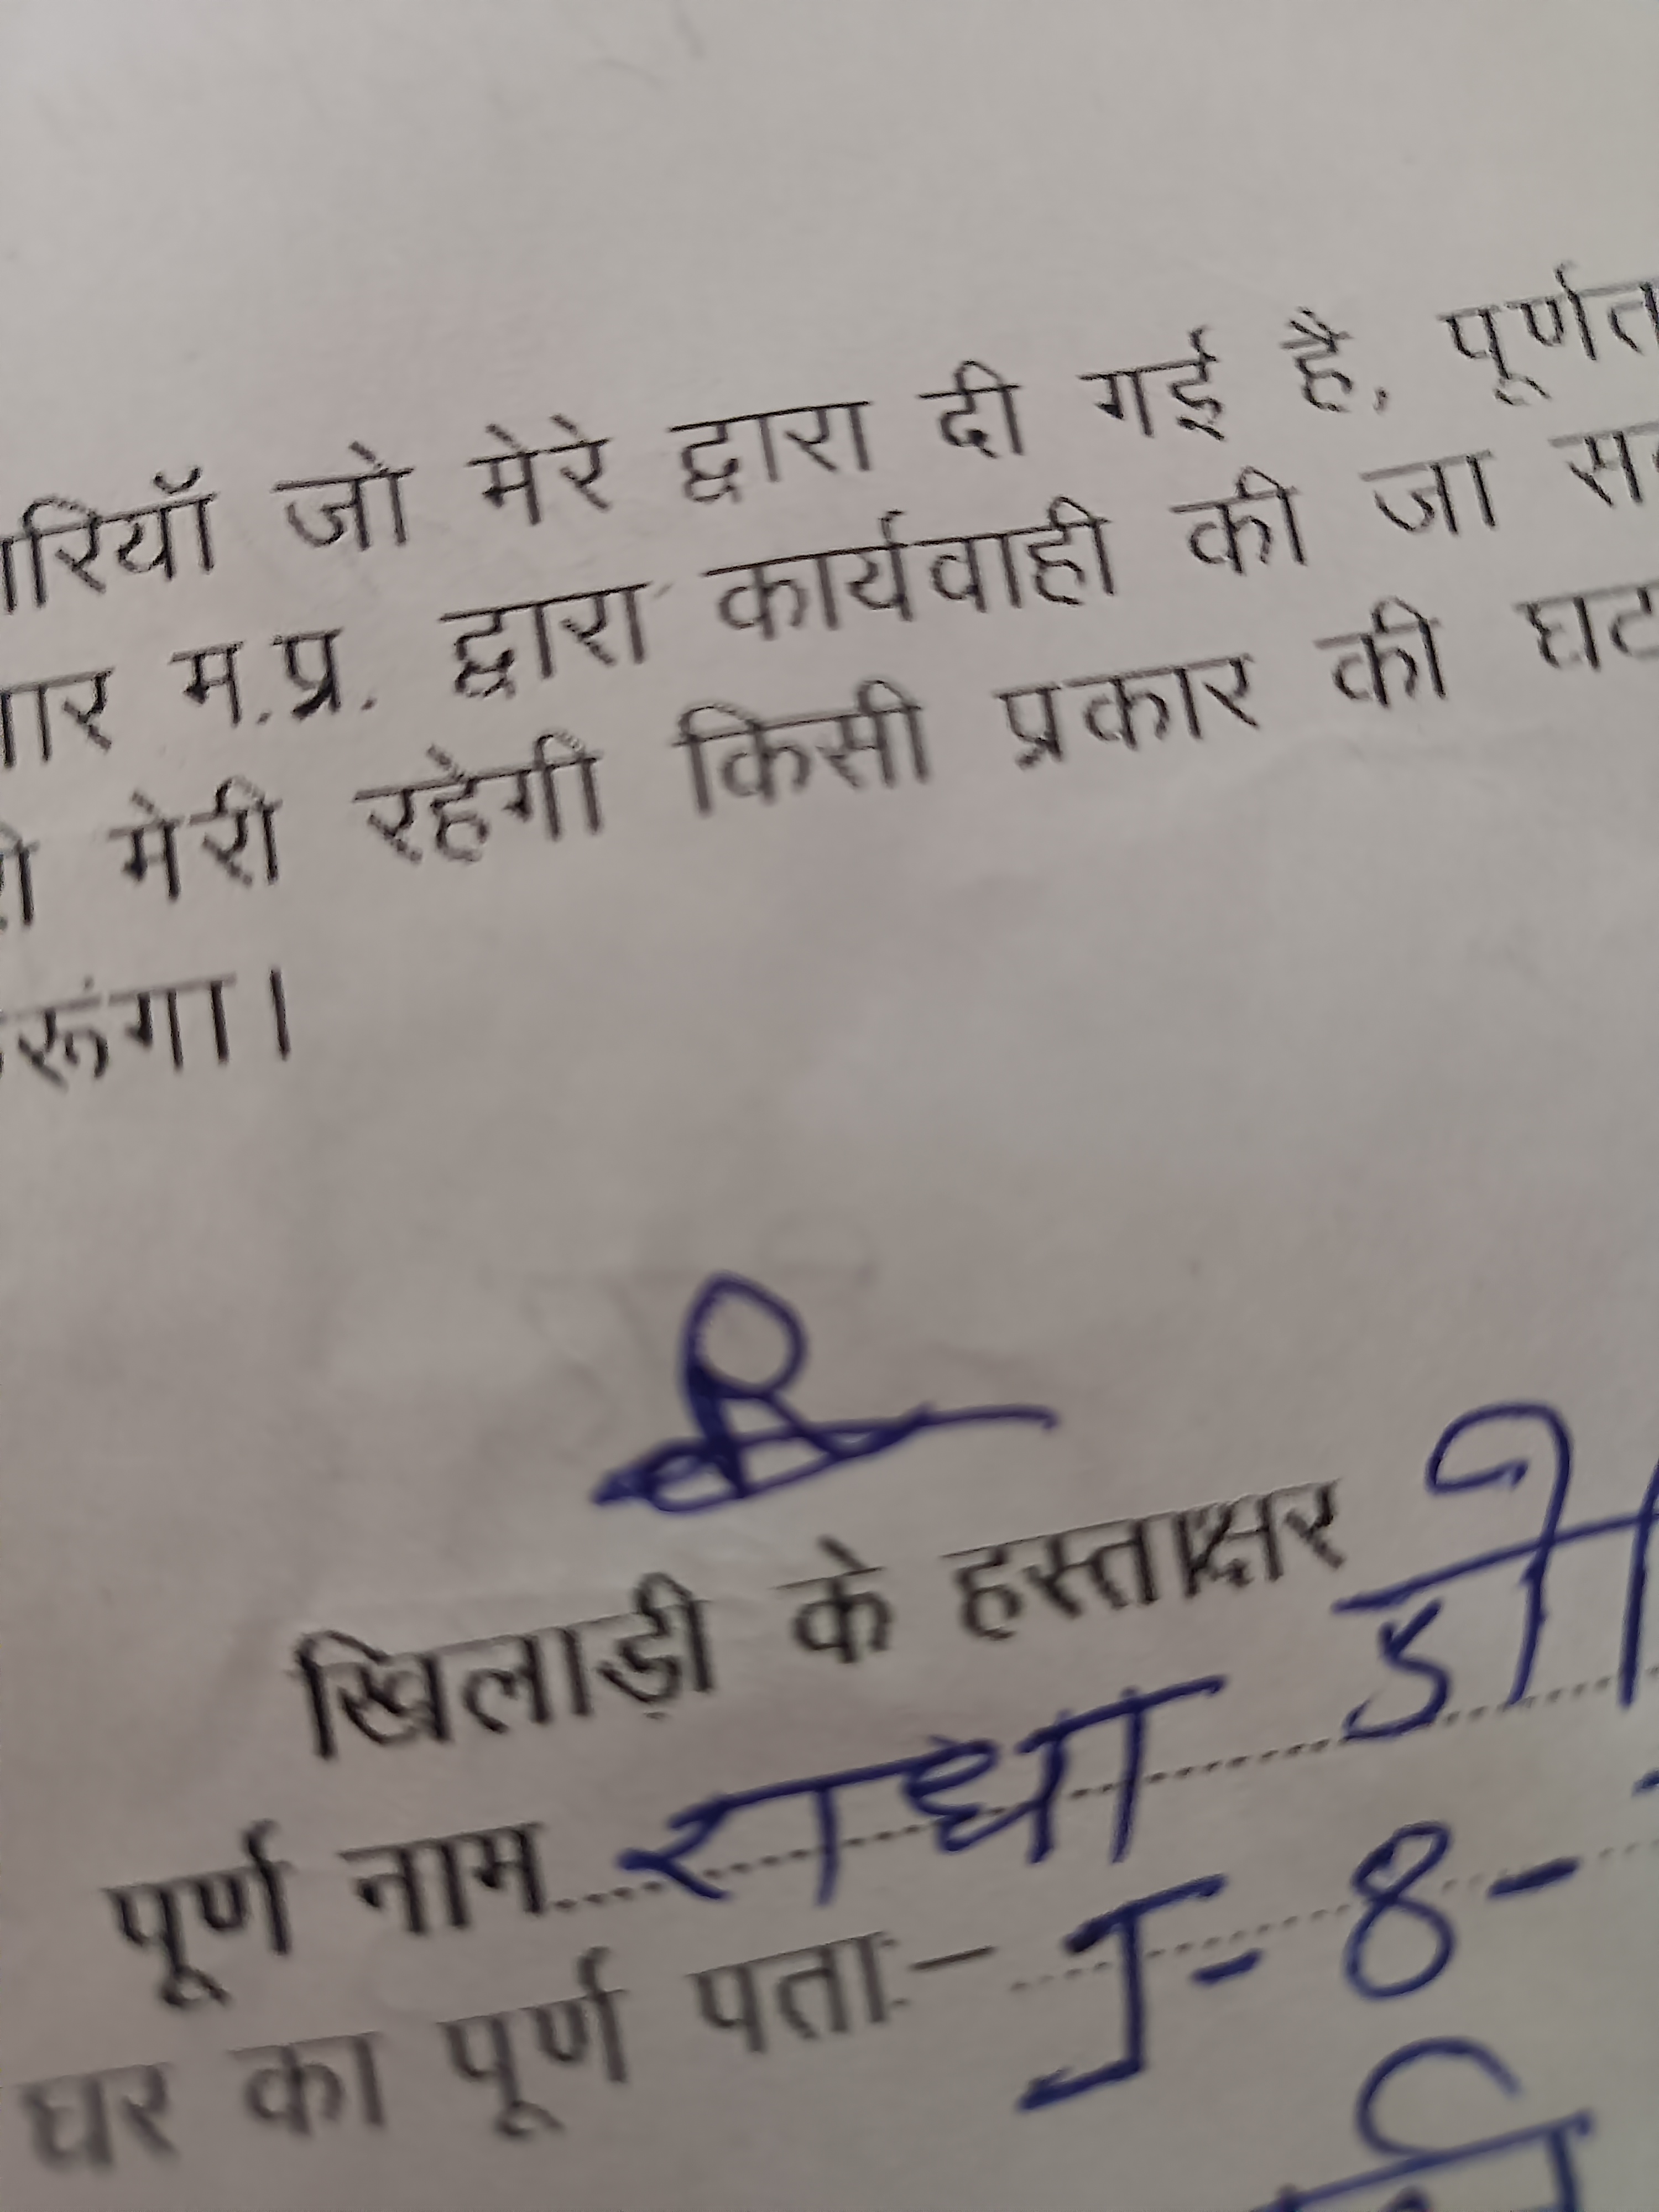 रियाँ जो मेरे द्वारा दी गई है, पूर्णत
ार म.प्र. द्वारा कार्यवाही की जा स
मेरी रहेगी किसी प्रकार की घट
रूंगा।
खिलाड़ी के हस्ताक्षर
पूर्ण नाम राधा
घर का पूर्ण पताः- J-8-